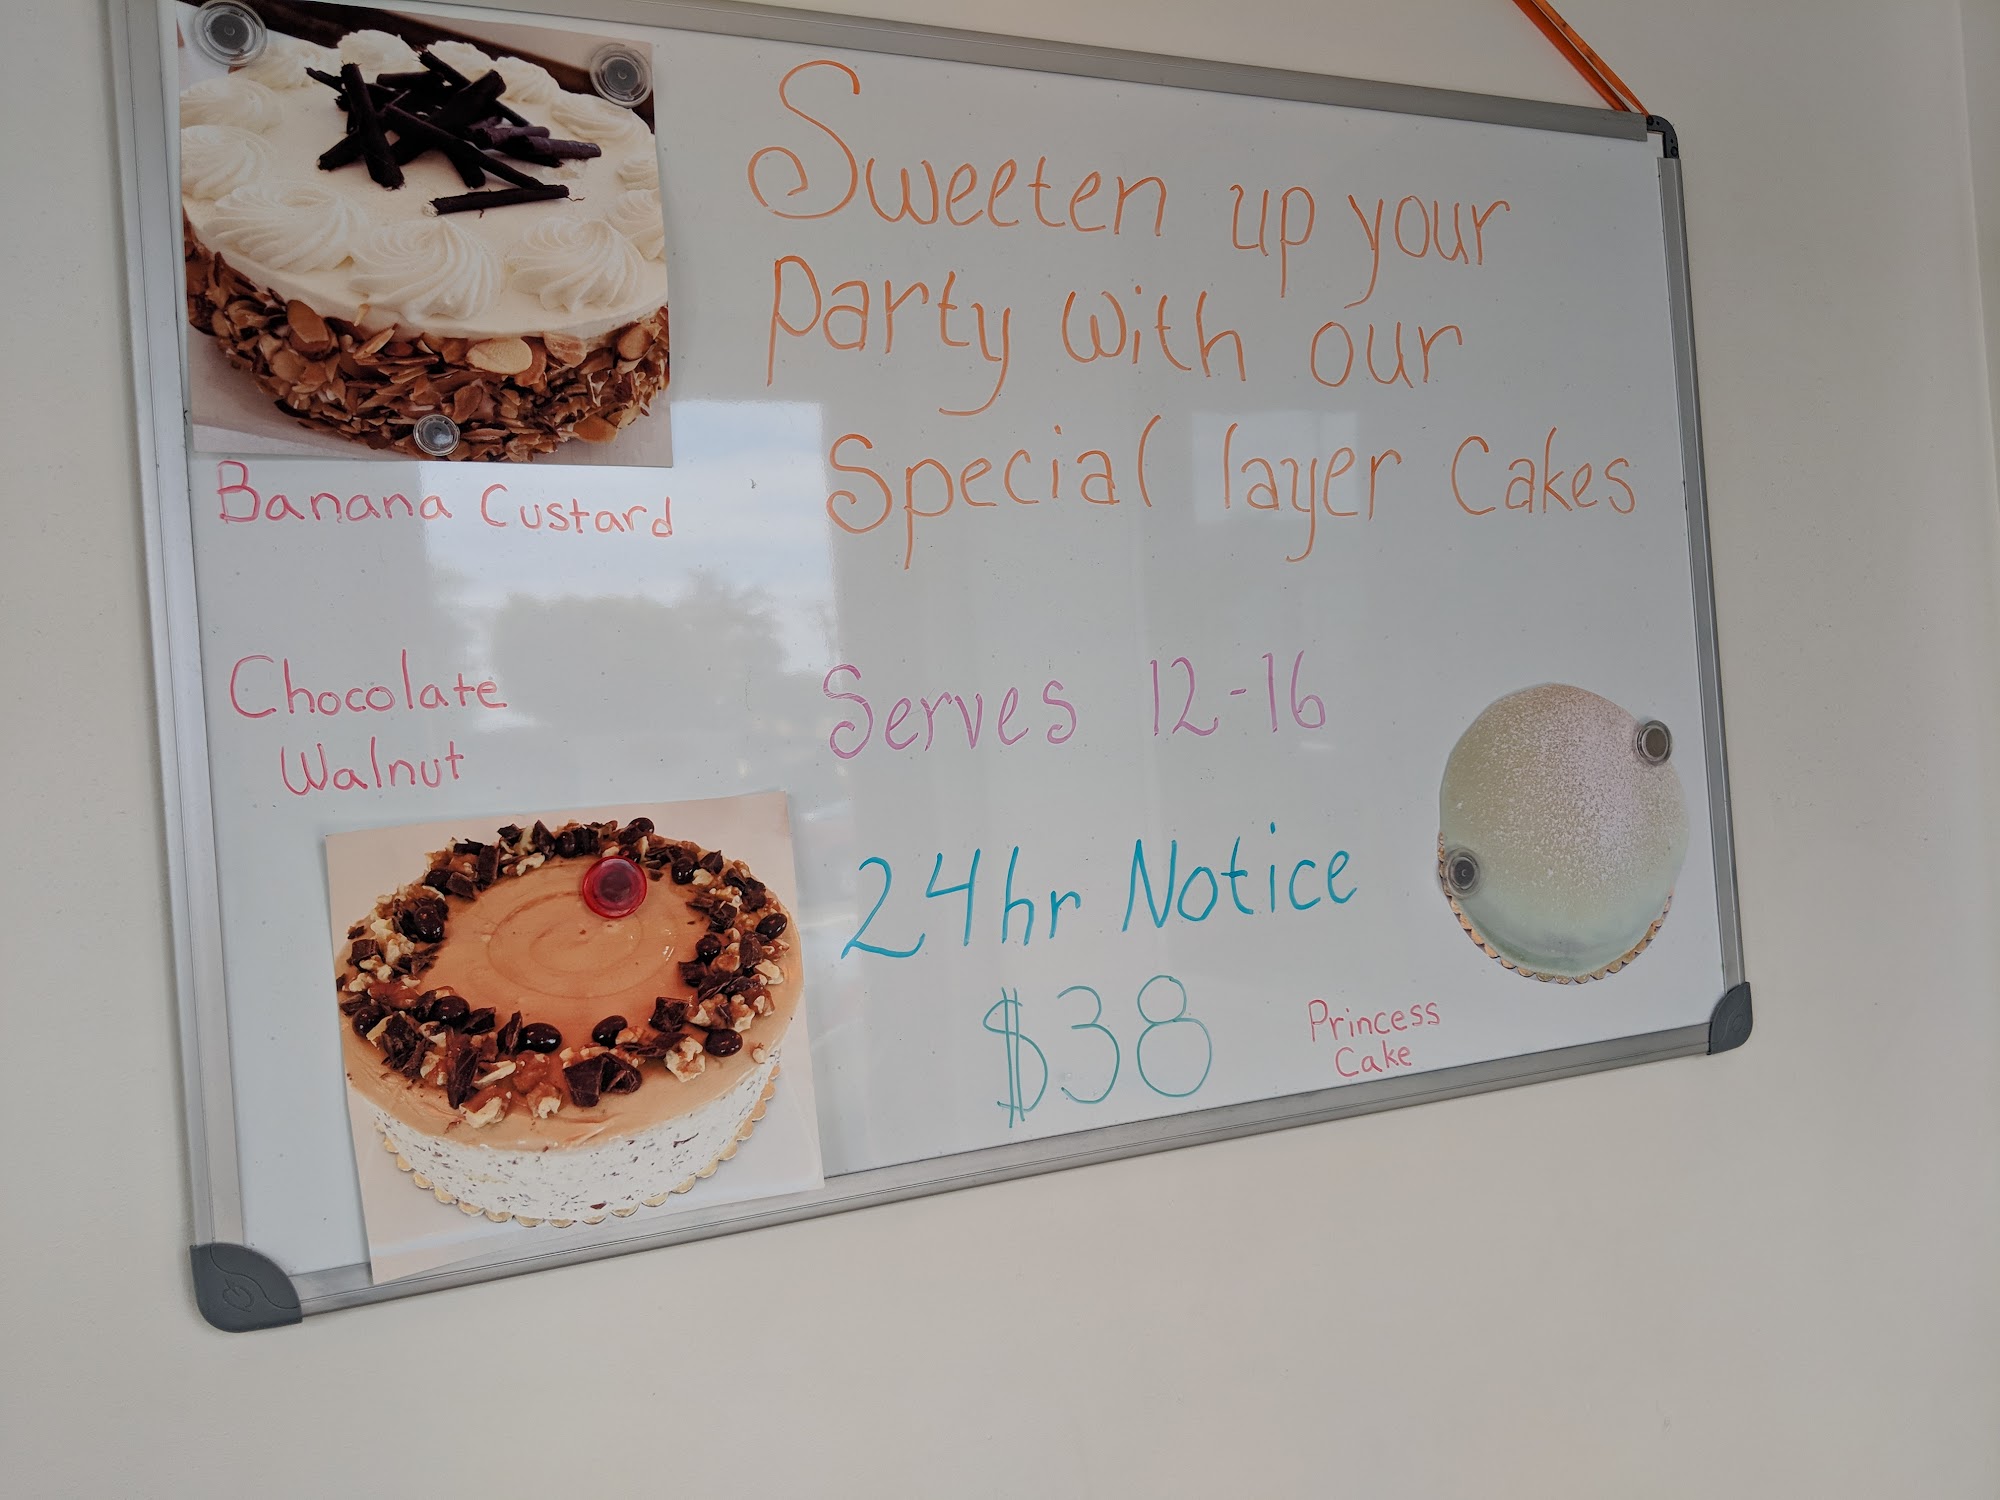 Sweeten up your
Party with our
Special layer Cakes
Banana Custard
Chocolate
Walnut
Serves 12-16
24hr Notice
$38
Princess
Cake